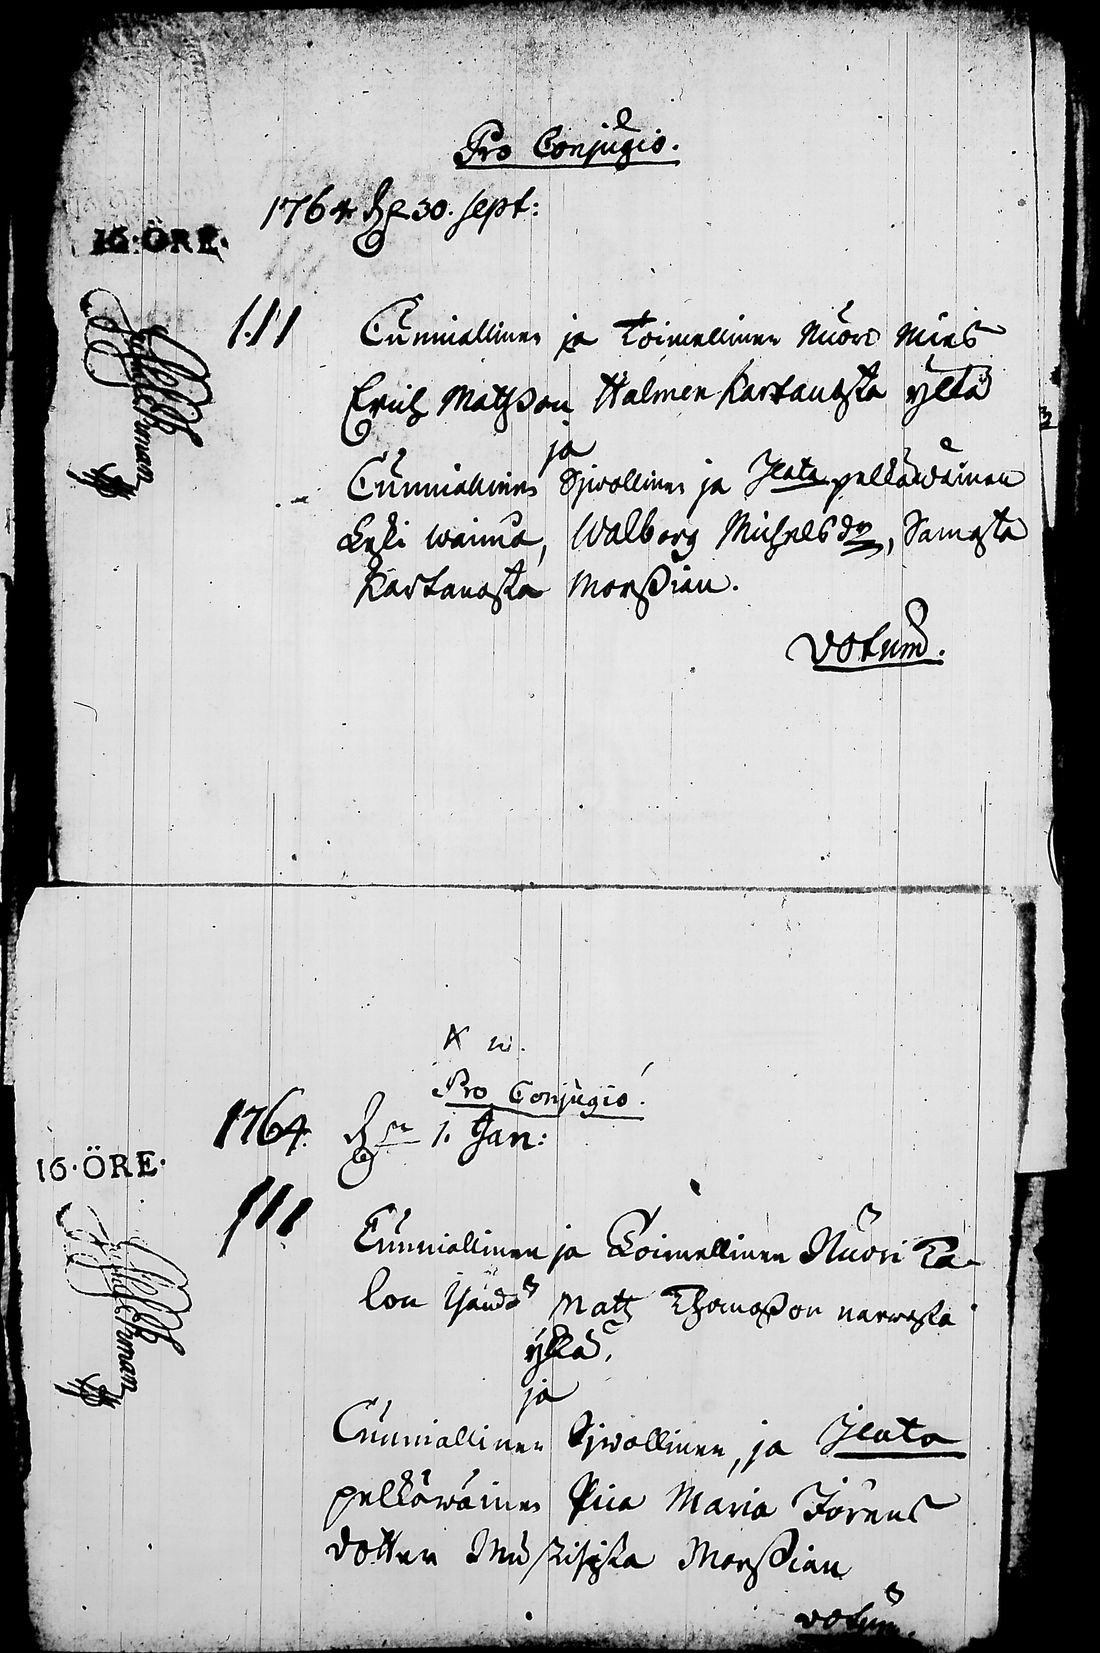 Pro Conjugio.
1764 d. 30. sept:
16·ÖRE·
1.11
Cunniallinen ja Toimellinen Nuori Mies
Erich Matsson Halmen Kartanosta ylkä
ja
Cunniallinen Sjwollinen ja Jleata pelkäwäinen
Leski waimo, Walborg Michelsdr, Samasta
Kartanosta Morssian.
votum.
Pro Conjugio.
1764 1. Jan:
16·ÖRE·
111
Cunniallinen ja Toimellinen Nuori Ta-
lon Isändä Matz Thomasson
ylkä,
ja
Cunniallinen Sjwollinen, ja Jleata
pelkäwäinen Piica Maria Jörens
dotter Morssian
votum.